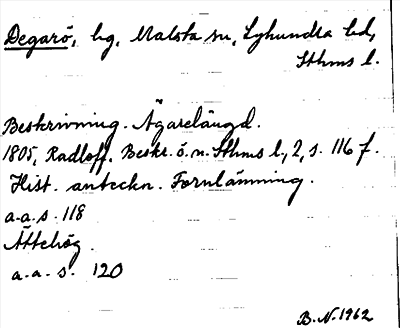 Degarö, hg, Malsta sn, Lyhundra hd,
Sthms l.
Beskrivning. Ägarelängd.
1805, Radloff. Beskr. ö. n. Sthms l, 2, s. 116 f.
Hist. anteckn. Fornlämning.
a.a.s. 118
Ättehög.
a.a.s. 120
B.N. 1962